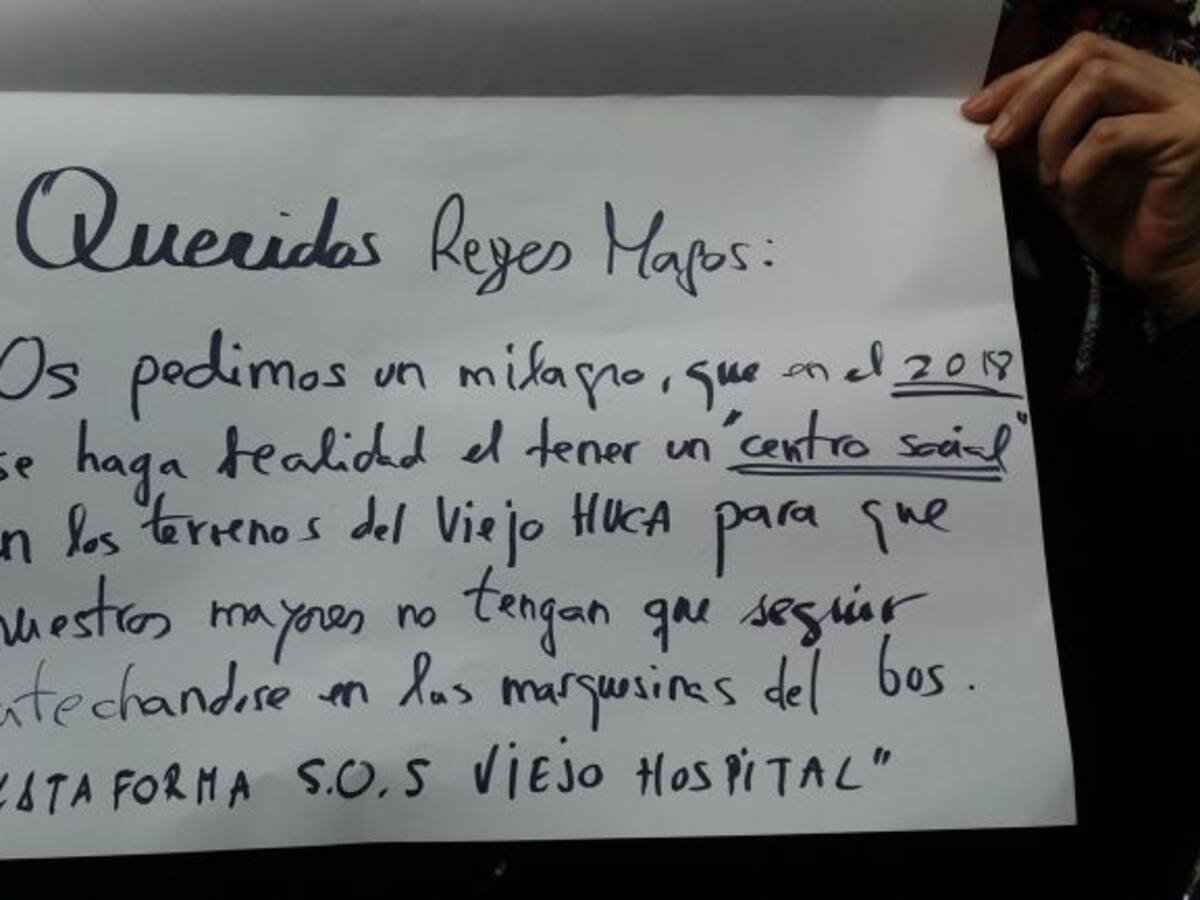 Queridos Reyes Magos:
Os pedimos un milagro, que en el 2018
se haga realidad el tener un "centro social"
n los terrenos del Viejo HUCA para que
nuestros mayores no tengan que seguir
atechandose en las marquesinas del bos.
LATAFORMA S.O.S VIEJO HOSPITAL"